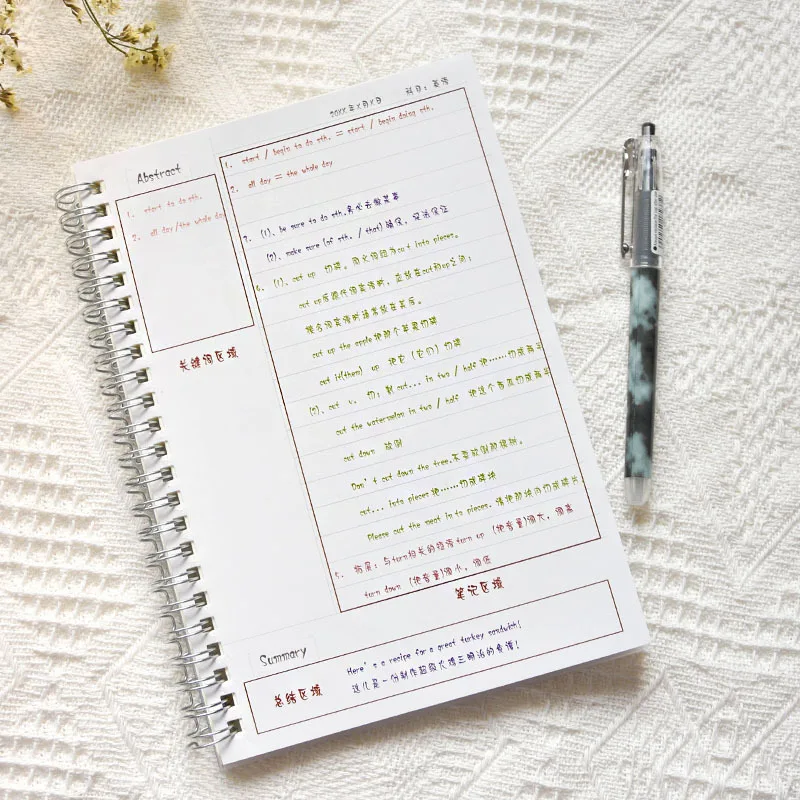 20XX年X月X日 科目：英语
Abstract
1. start to do sth.
2. all day/the whole day
关键词区域
1. start / begin to do sth. = start / begin doing sth.
2. all day = the whole day
3. (1)、be sure to do sth.务必去做某事
(2)、make sure (of sth. / that) 确保，设法保证
4. (1)、cut up 切碎。同义词组为cut into pieces。
cut up后跟代词宾语时，应放在cut和up之间；
接名词宾语时通常放在其后。
cut up the apple把那个苹果切碎
cut it(them) up 把它（它们）切碎
(2)、cut v. 切；割 cut... in two / half 把……切成两半
cut the watermelon in two / half 把这个西瓜切成两半
cut down 砍倒
Don't cut down the tree.不要砍倒那棵树。
cut... into pieces把……切成碎块
Please cut the meat into pieces. 请把那块肉切成碎片
5. 拓展：与turn相关的短语turn up （把音量）调大，调高
turn down （把音量）调小，调低
笔记区域
Summary
总结区域
Here's a recipe for a great turkey sandwich!
这儿是一份制作超级火鸡三明治的食谱！